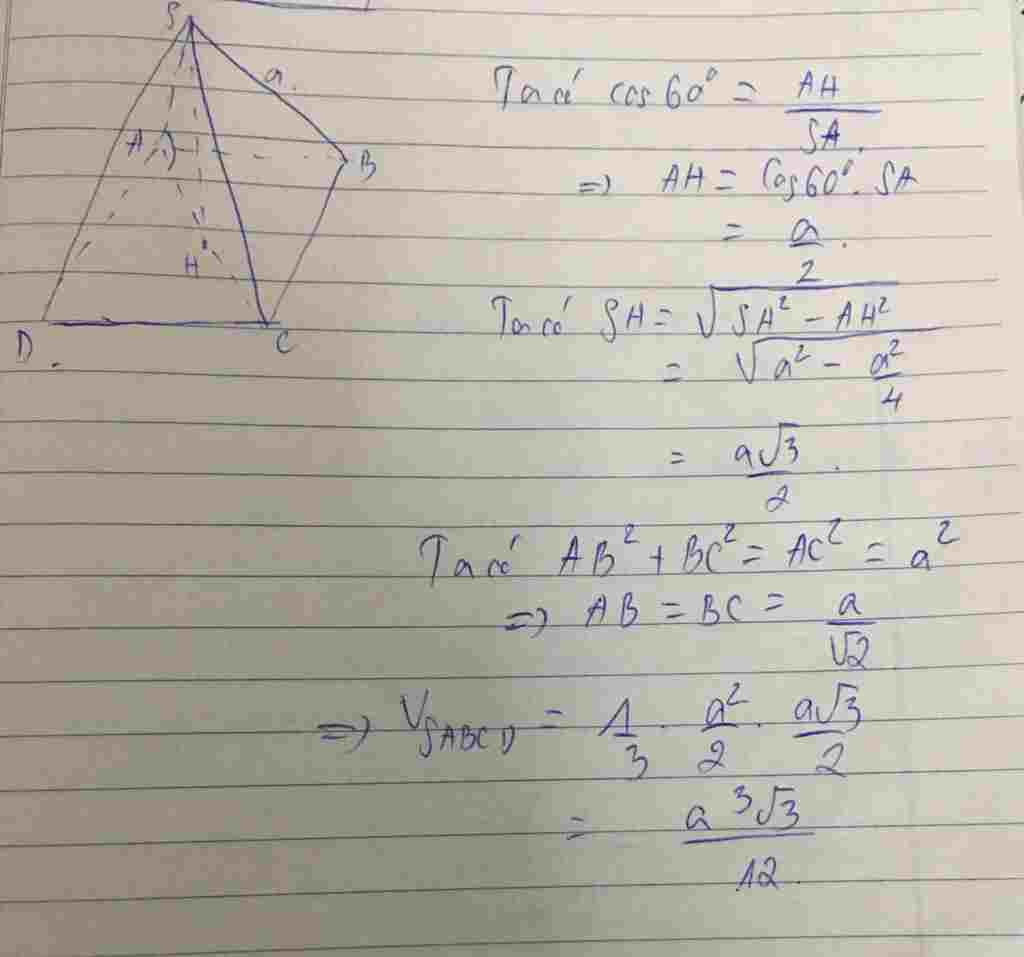 S
a.
A
B
H
D.
C
Ta có cos 60° = AH / SA.
=> AH = Cos 60°. SA
= a / 2.
Ta có SH = √(SA² - AH²)
= √(a² - a² / 4)
= a√3 / 2.
Ta có AB² + BC² = AC² = a²
=> AB = BC = a / √2
=> V SABCD = 1 / 3 . a² / 2 . a√3 / 2
= a³√3 / 12.